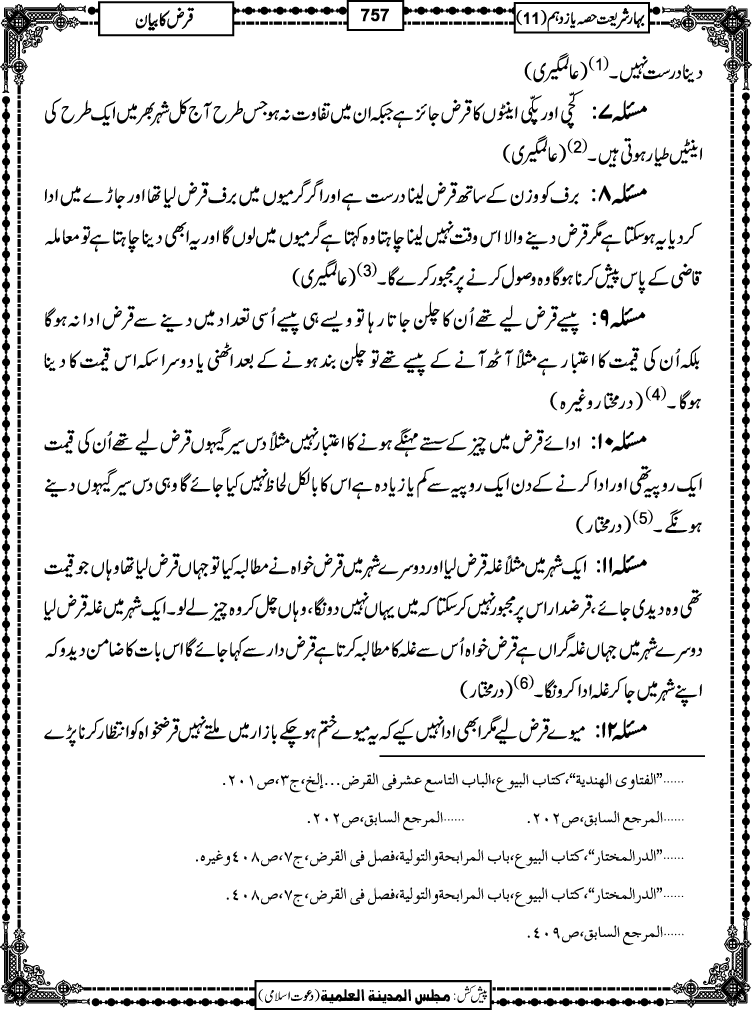 بہار شریعت حصہ یازدہم (11)
757
قرض کا بیان
دینا درست نہیں۔(1) (عالمگیری)
مسئلہ ۷: کچّی اور پکّی اینٹوں کا قرض جائز ہے جبکہ ان میں تفاوت نہ ہو جس طرح آج کل شہر بھر میں ایک طرح کی
اینٹیں طیار ہوتی ہیں۔(2) (عالمگیری)
مسئلہ ۸: برف کو وزن کے ساتھ قرض لینا درست ہے اور اگر گرمیوں میں برف قرض لیا تھا اور جاڑے میں ادا
کردیا یہ ہوسکتا ہے مگر قرض دینے والا اس وقت نہیں لینا چاہتا وہ کہتا ہے گرمیوں میں لوں گا اور یہ ابھی دینا چاہتا ہے تو معاملہ
قاضی کے پاس پیش کرنا ہوگا وہ وصول کرنے پر مجبور کرے گا۔(3) (عالمگیری)
مسئلہ ۹: پیسے قرض لیے تھے اُن کا چلن جاتا رہا تو ویسے ہی پیسے اُسی تعداد میں دینے سے قرض ادا نہ ہوگا
بلکہ اُن کی قیمت کا اعتبار ہے مثلاً آٹھ آنے کے پیسے تھے تو چلن بند ہونے کے بعد اٹھنی یا دوسرا سکہ اس قیمت کا دینا
ہوگا۔(4) (درمختار وغیرہ)
مسئلہ ۱۰: ادائے قرض میں چیز کے سستے مہنگے ہونے کا اعتبار نہیں مثلاً دس سیر گیہوں قرض لیے تھے اُن کی قیمت
ایک روپیہ تھی اور ادا کرنے کے دن ایک روپیہ سے کم یا زیادہ ہے اس کا بالکل لحاظ نہیں کیا جائے گا وہی دس سیر گیہوں دینے
ہونگے۔(5) (درمختار)
مسئلہ ۱۱: ایک شہر میں مثلاً غلہ قرض لیا اور دوسرے شہر میں قرض خواہ نے مطالبہ کیا تو جہاں قرض لیا تھا وہاں جو قیمت
تھی وہ دیدی جائے، قرضدار اس پر مجبور نہیں کرسکتا کہ میں یہاں نہیں دونگا، وہاں چل کر وہ چیز لے لو۔ ایک شہر میں غلہ قرض لیا
دوسرے شہر میں جہاں غلہ گراں ہے قرض خواہ اُس سے غلہ کا مطالبہ کرتا ہے قرض دار سے کہا جائے گا اس بات کا ضامن دیدو کہ
اپنے شہر میں جا کر غلہ ادا کرونگا۔(6) (درمختار)
مسئلہ ۱۲: میوے قرض لیے مگر ابھی ادا نہیں کیے کہ یہ میوے ختم ہوچکے بازار میں ملتے نہیں قرضخواہ کو انتظار کرنا پڑے
......”الفتاوی الھندیة“، کتاب البیوع، الباب التاسع عشر فی القرض...إلخ، ج۳، ص۲۰۱.
......المرجع السابق، ص۲۰۲. ......المرجع السابق، ص۲۰۲.
......”الدرالمختار“، کتاب البیوع، باب المرابحة والتولیة، فصل فی القرض، ج۷، ص۴۰۸ وغیرہ.
......”الدرالمختار“، کتاب البیوع، باب المرابحة والتولیة، فصل فی القرض، ج۷، ص۴۰۸.
......المرجع السابق، ص۴۰۹.
پیش کش: مجلس المدینة العلمیة (دعوت اسلامی)